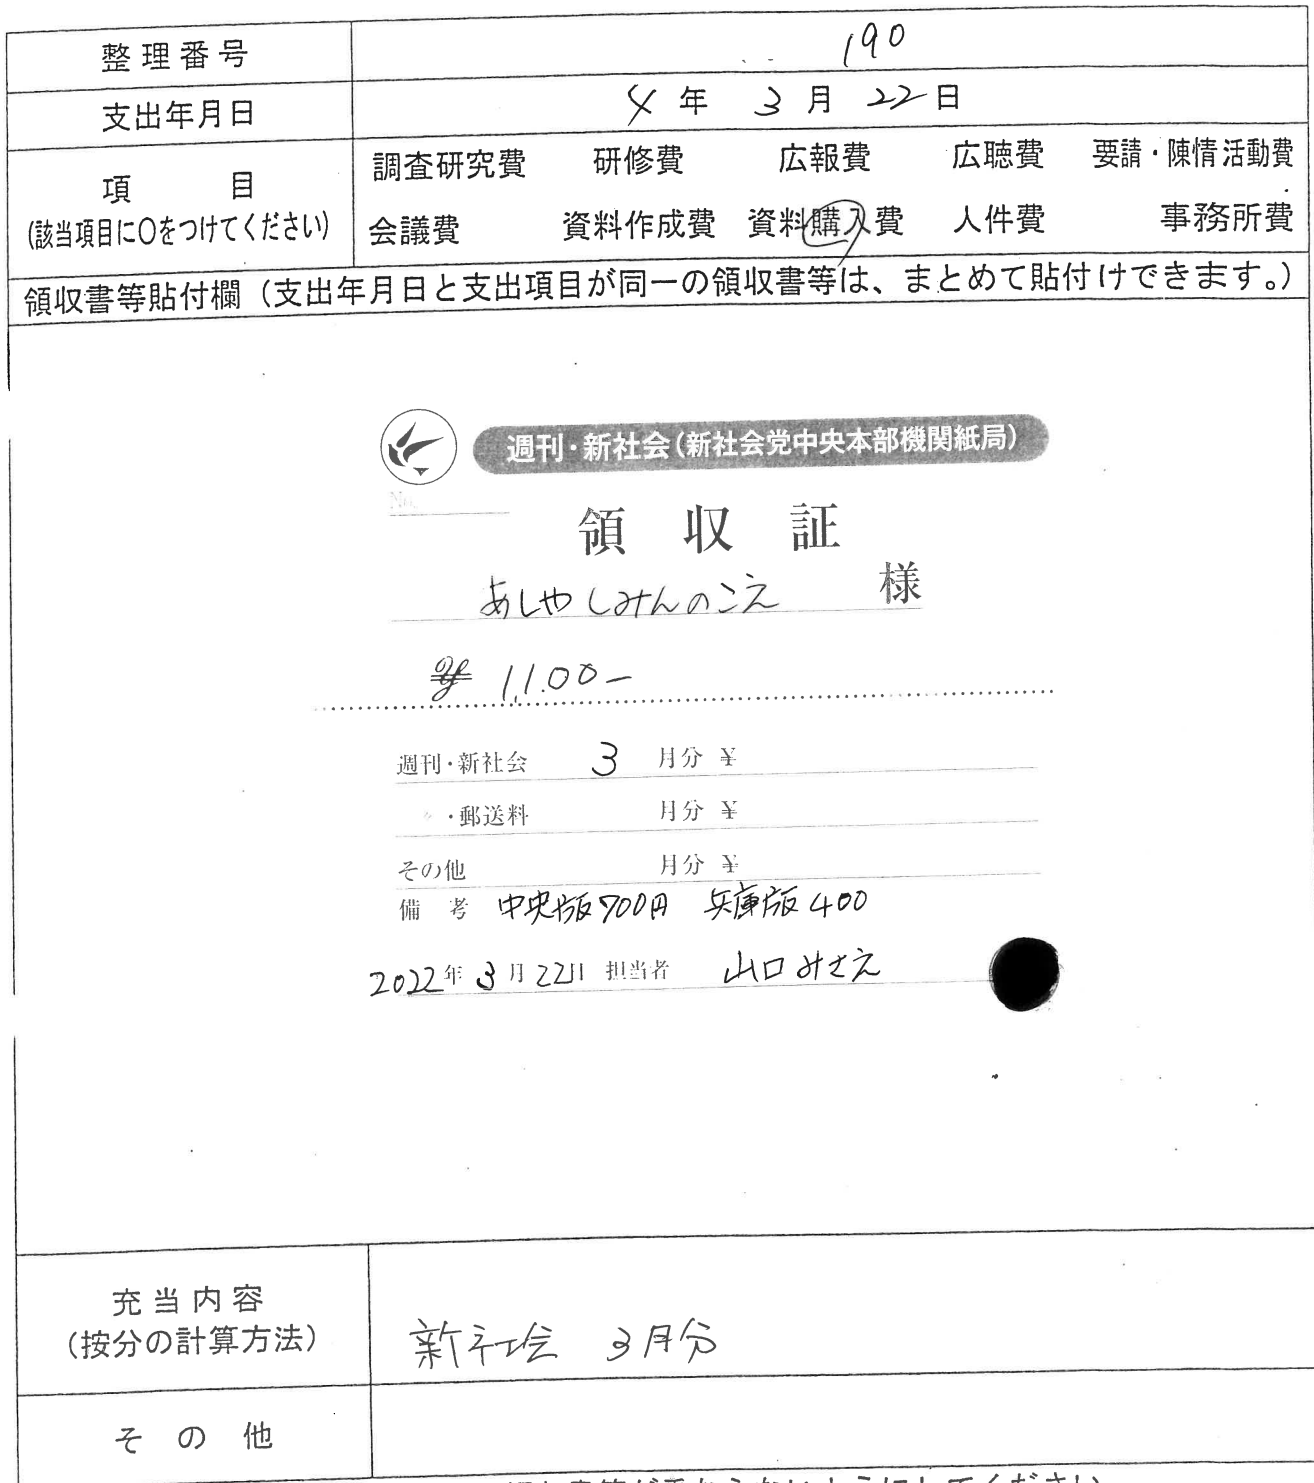 整理番号 190
支出年月日 4年 3月 22日
項目 調査研究費 研修費 広報費 広聴費 要請・陳情活動費
(該当項目に〇をつけてください) 会議費 資料作成費 資料購入費 人件費 事務所費
領収書等貼付欄（支出年月日と支出項目が同一の領収書等は、まとめて貼付けできます。）
週刊・新社会(新社会党中央本部機関紙局)
No.
領収証
あしやしみんのこえ 様
¥ 1,100-
週刊・新社会 3 月分 ¥
〃・郵送料 月分 ¥
その他 月分 ¥
備考 中央版700円 兵庫版400
2022年3月22日 担当者 山口みさえ
充当内容
(按分の計算方法)
新社会 3月分
その他